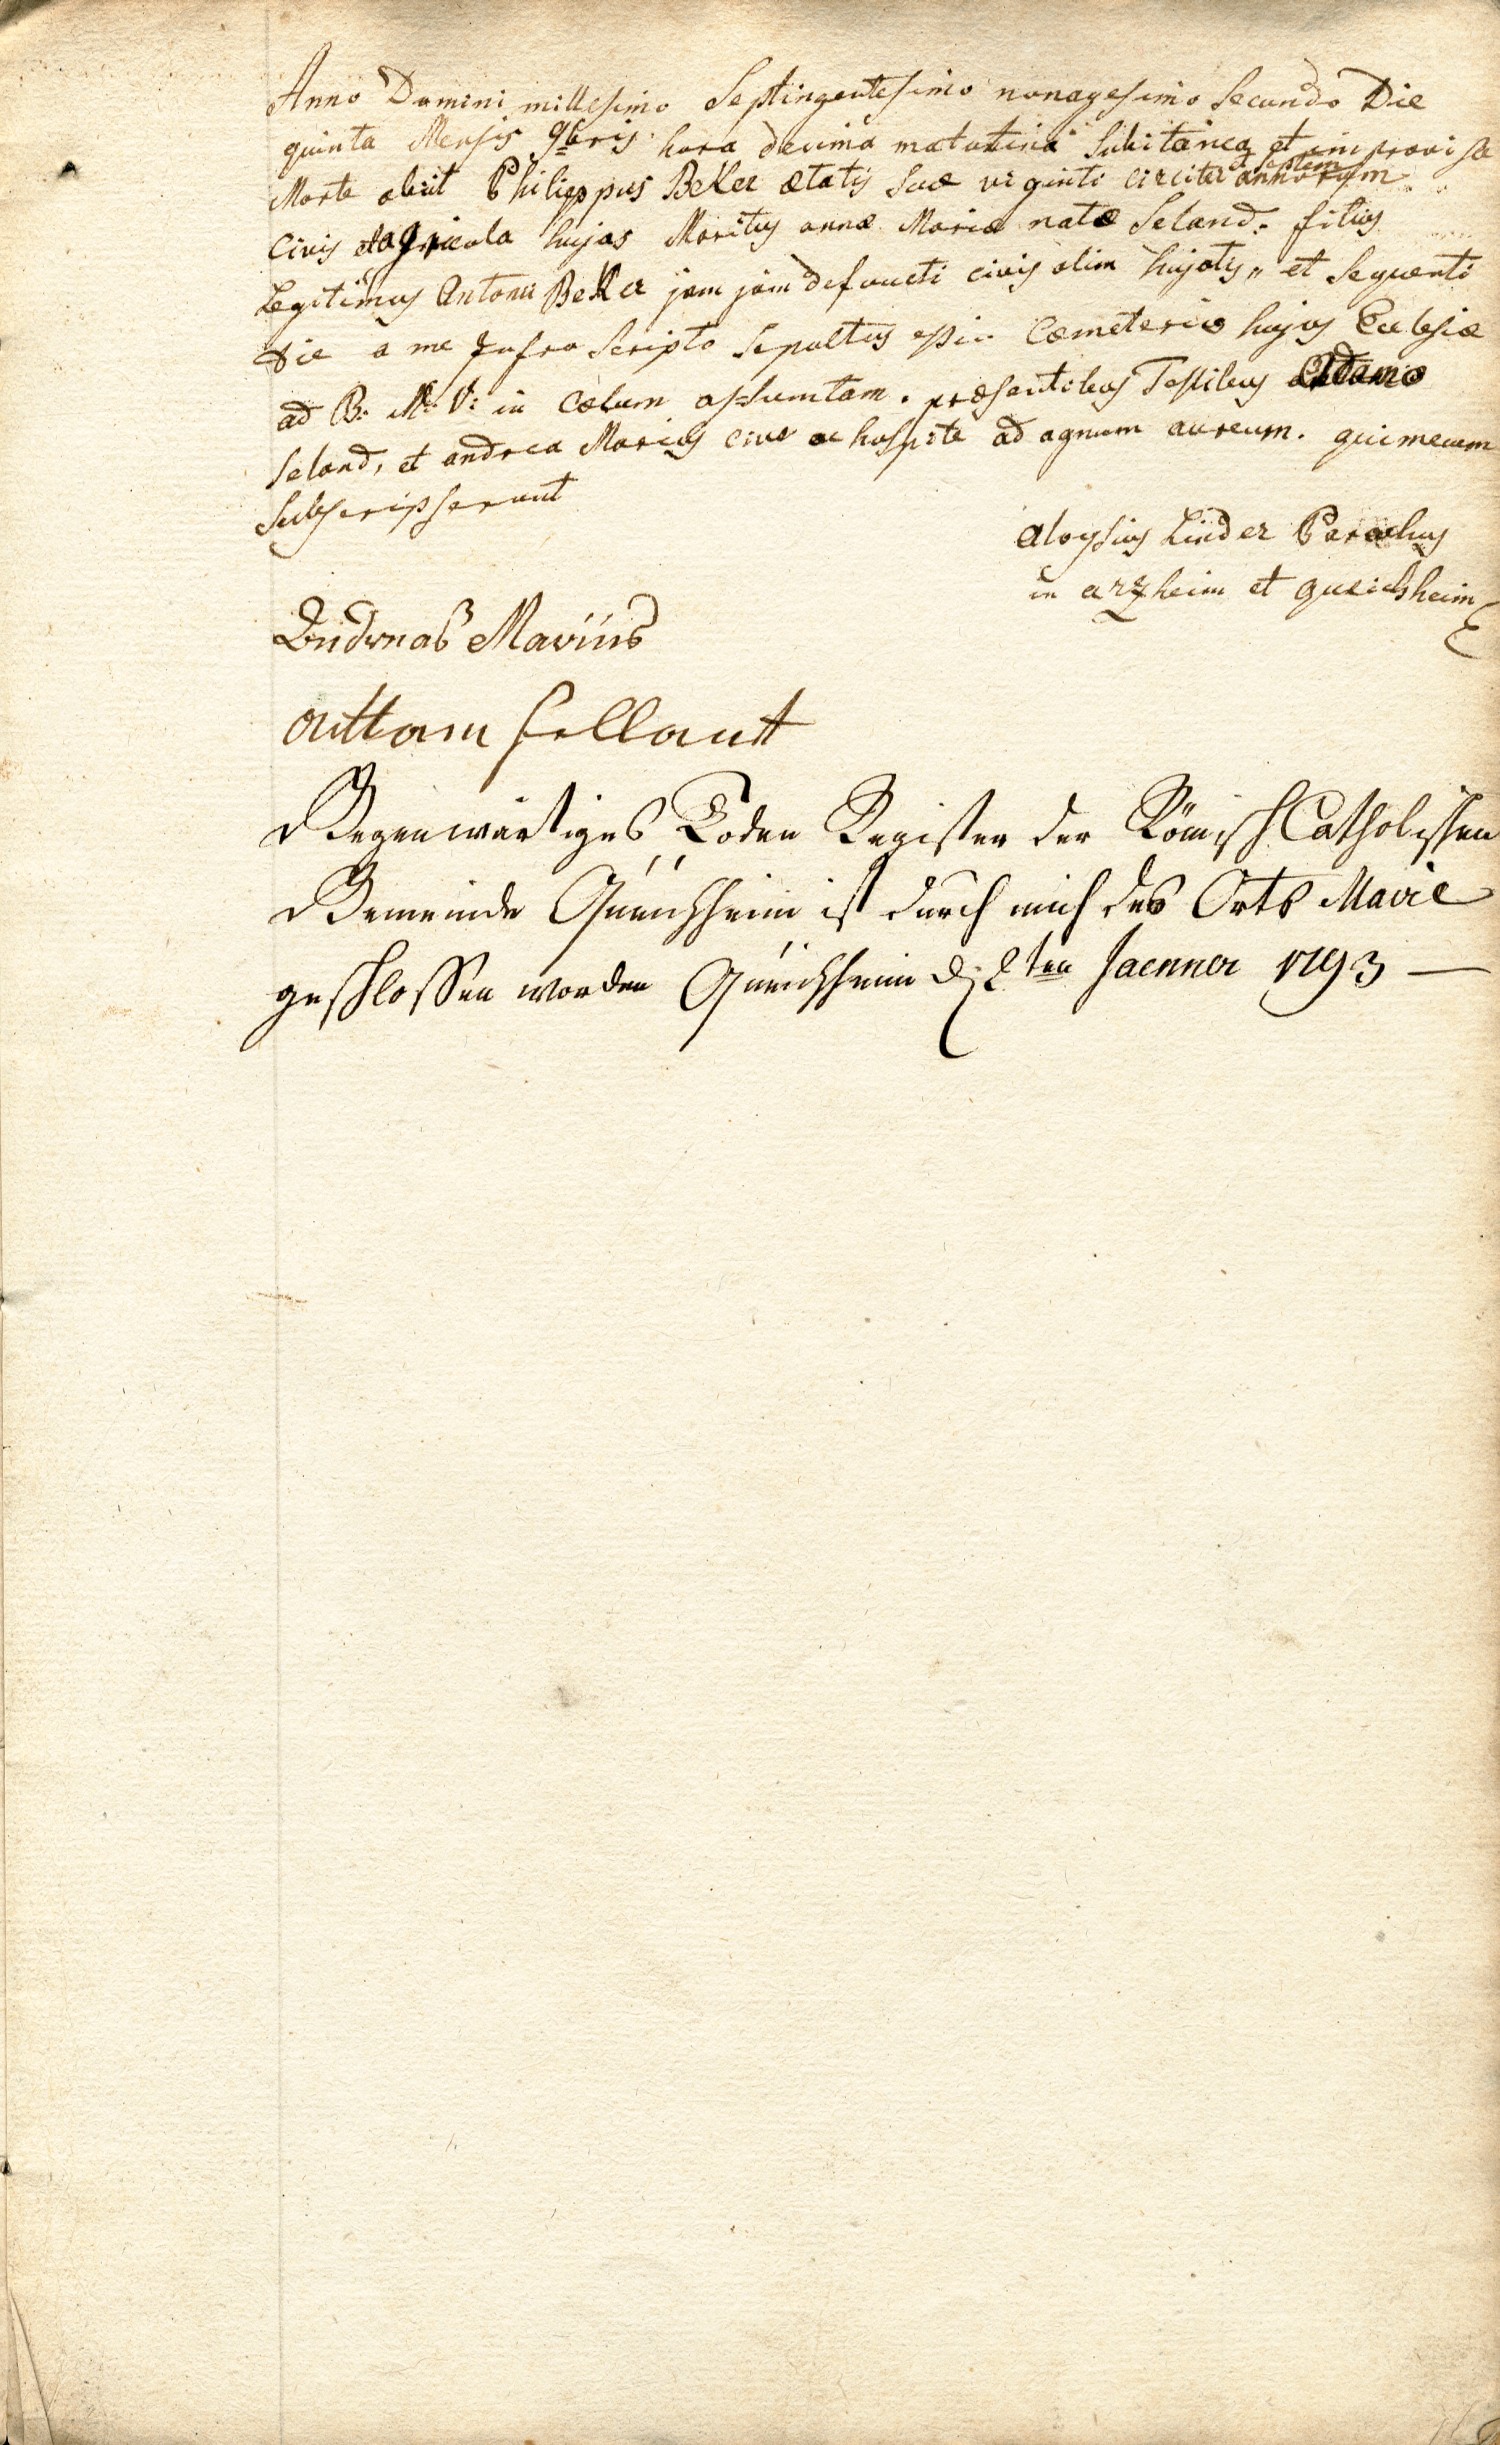 Anno Domini millesimo Septingentesimo nonagesimo Secundo Die
quinta Mensis 9bris hora decima matutina Subitanea et improvisa
Morte obiit Philippus Beker ætatis suæ viginti circiter septem annorum
Civis et agricola hujas Maritus annæ Mariæ natæ Seland. filius
Legitimus Antonii Beker jam jam defuncti civis olim hujatis,, et sequenti
die a me Infra Scripto Sepultus est in Cæmeterio hujus Ecclesiæ
ad B: M: V: in Cælum assumtam. præsentibus Testibus Adamo
Seland, et andrea Marius cive ac hospite ad agnum aureum. qui mecum
Subscripserunt
Aloysius Linder Parochus
in arzheim et queichheim
Andreas Mariüs
attam sellant
Gegenwärtiges Toden Register der Römisch Catholischen
Gemeinde Queichheim ist durch mich des Orts Maire
geschlossen worden Queichheim d. 2ten Jaenner 1793 —